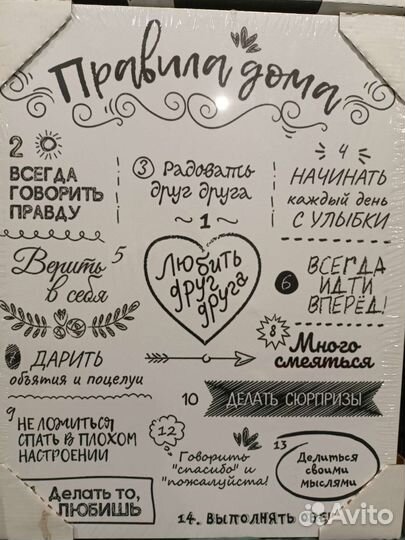 Правила дома
2
ВСЕГДА
ГОВОРИТЬ
ПРАВДУ
3 Радовать
друг друга
4
НАЧИНАТЬ
каждый день
С УЛЫБКИ
~ 1 ~
Любить
друг
друга
5
Верить
в себя
6
ВСЕГДА
ИДТИ
ВПЕРЁД!
7 ДАРИТЬ
объятия и поцелуи
8
Много
смеяться
9
НЕ ЛОЖИТЬСЯ
СПАТЬ В ПЛОХОМ
НАСТРОЕНИИ
10 ДЕЛАТЬ СЮРПРИЗЫ
12
Говорить
"спасибо" и
"пожалуйста!
13
Делиться
своими
мыслями
Делать то,
ЛЮБИШЬ
14. ВЫПОЛНЯТЬ
Avito